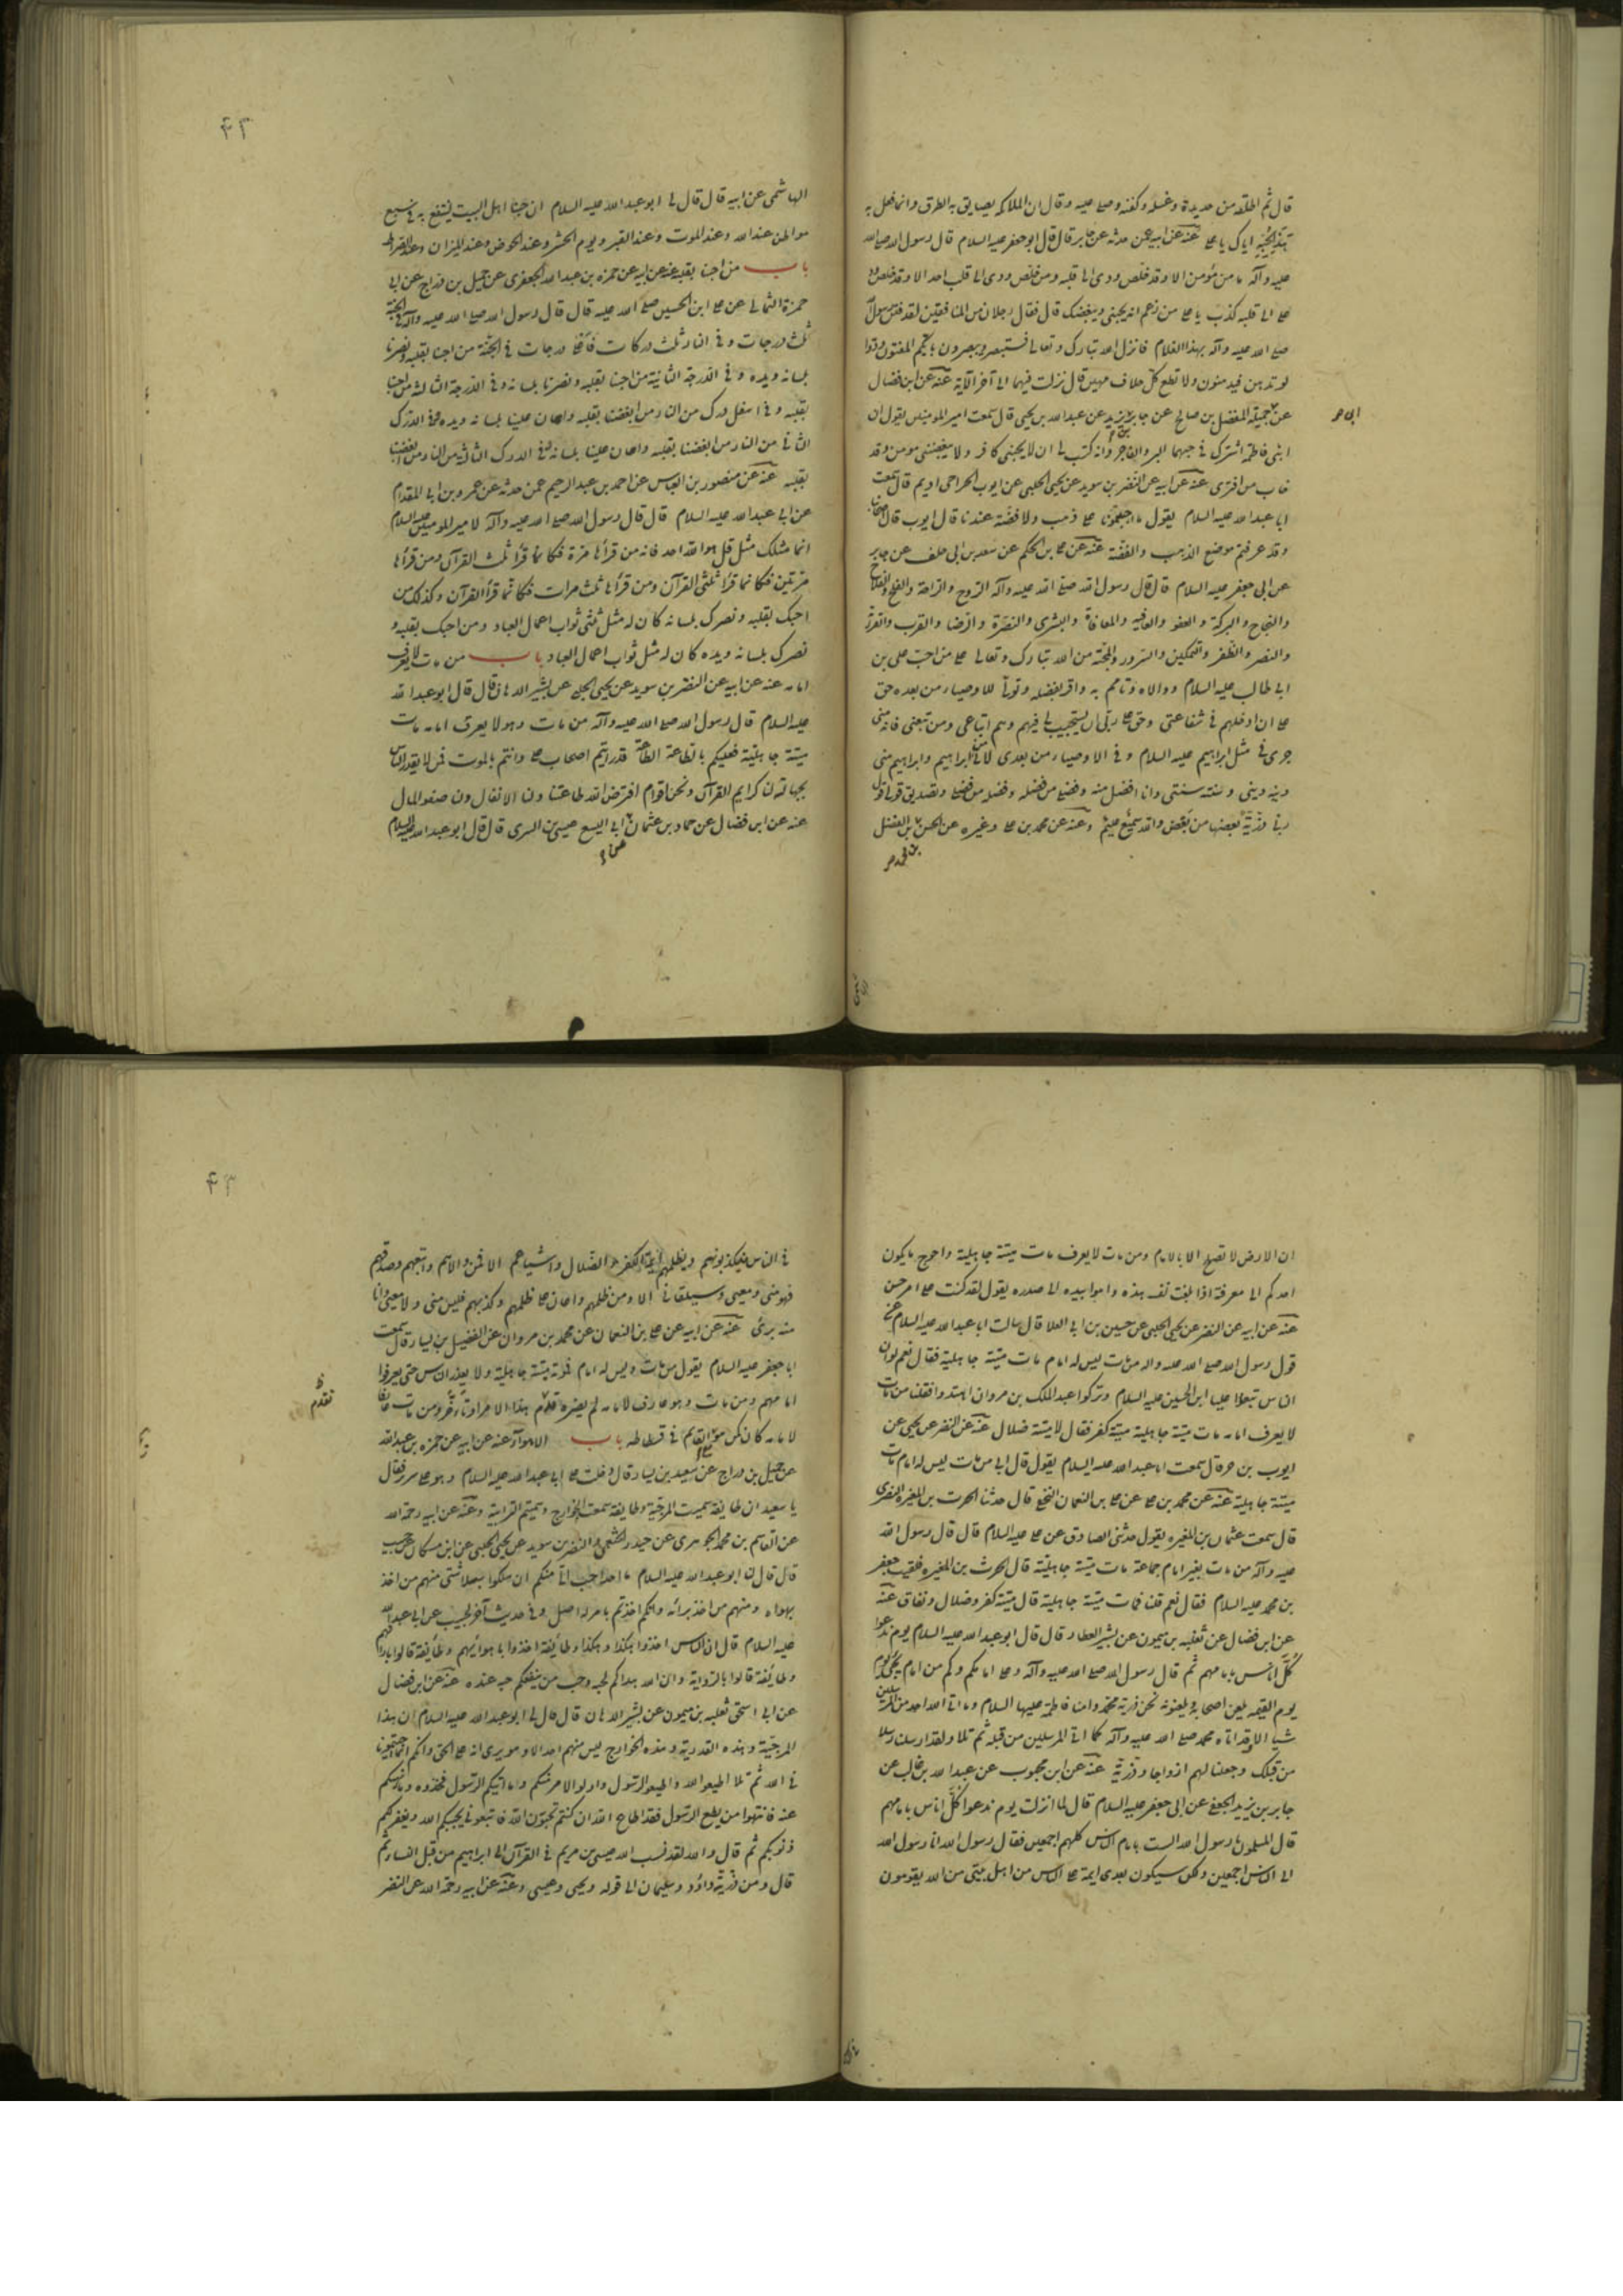 قال ثم اطلقه من حديدة وغسله وكفنه وصلى عليه وقال ان الملائكة يصايق به الطرق وانما فعل به
اياك يا على عنه عن ابيه عمن حدثه عن جابر قال قال ابو جعفر عليه السلام قال رسول الله صلى الله
عليه وآله ما من مؤمن الا وقد خلص ودى الى قلبه وما خلص ودى الى قلب احد الا وقد خلص ود
على الى قلبه كذب يا على من زعم انه يحبنى ويبغضك قال فقال رجلان من المنافقين لقد فتن رسول الله
صلى الله عليه وآله بهذا الغلام فانزل الله تبارك وتعالى فستبصر ويبصرون بايكم المفتون ودوا
لو تدهن فيدهنون ولا تطع كل حلاف مهين قال نزلت فيهما الى آخر الآية عنه عن ابن فضال
عن جميلة المفضل بن صالح عن جابر بن يزيد عن عبد الله بن يحيى قال سمعت امير المؤمنين يقول ان
ابى
ابنى فاطمة اشترك فى حبهما البر والفاجر وانه كتب لى ان لا يحبنى كافر ولا يبغضنى مؤمن وقد
خاب من افترى عنه عن ابيه عن النضر بن سويد عن يحيى الحلبى عن ايوب الحر اخى اديم قال سمعت
ابا عبد الله عليه السلام يقول ما احببتمونا على ذهب ولا فضة عندنا قال ايوب قال اصحابنا
وقد عرفتم موضع الذهب والفضة عنه عن على بن الحكم عن سعد بن ابى خلف عن جابر
عن ابى جعفر عليه السلام قال قال رسول الله صلى الله عليه وآله الروح والراحة والفلج والفلاح
والنجاح والبركة والعفو والعافية والمعافاة والبشرى والنضرة والرضا والقرب والقرابة
والنصر والظفر والتمكين والسرور والمحبة من الله تبارك وتعالى على من احب على بن
ابى طالب عليه السلام ووالاه وائتم به واقر بفضله وتولى الاوصياء من بعده حق
على ان ادخلهم فى شفاعتى وحق على ربى ان يستجيب لى فيهم وهم اتباعى ومن تبعنى فانه منى
جرى فى مثل ابراهيم عليه السلام وفى الاوصياء من بعدى لانى من ابراهيم وابراهيم منى
دينه دينى وسنته سنتى وانا افضل منه وفضلى من فضله وفضله من فضلى وتصديق قولى قول
ربى ذرية بعضها من بعض والله سميع عليم وعنه عن محمد بن على وغيره عن الحسن بن الفضل
بن محمد
٤٣
الهاشمى عن ابيه قال قال لى ابو عبد الله عليه السلام ان حبنا اهل البيت ينتفع به فى سبع
مواطن عند الله وعند الموت وعند القبر ويوم الحشر وعند الحوض وعند الميزان وعند الصراط
باب من احبنا بقلبه عنه عن ابيه عن حمزة بن عبد الله الجعفرى عن جميل بن دراج عن ابى
حمزة الثمالى عن على ابن الحسين صلى الله عليه قال قال رسول الله صلى الله عليه وآله فى الجنة
ثلث درجات وفى النار ثلث دركات فاعلى درجات فى الجنة من احبنا بقلبه ونصرنا
بلسانه ويده وفى الدرجة الثانية من احبنا بقلبه ونصرنا بلسانه وفى الدرجة الثالثة من احبنا
بقلبه وفى اسفل درك من النار من ابغضنا بقلبه واعان علينا بلسانه ويده وفى الدرك
الثانى من النار من ابغضنا بقلبه واعان علينا بلسانه وفى الدرك الثالثة من النار من ابغضنا
بقلبه عنه عن منصور بن العباس عن احمد بن عبد الرحيم عمن حدثه عن عمرو بن ابى المقدام
عن ابى عبد الله عليه السلام قال قال رسول الله صلى الله عليه وآله لامير المؤمنين عليه السلام
انما مثلك مثل قل هو الله احد فانه من قرأها مرة فكانما قرأ ثلث القرآن ومن قرأها
مرتين فكانما قرأ ثلثى القرآن ومن قرأها ثلث مرات فكانما قرأ القرآن وكذلك من
احبك بقلبه ونصرك بلسانه كان له مثل ثلثى ثواب اعمال العباد ومن احبك بقلبه و
نصرك بلسانه ويده كان له مثل ثواب اعمال العباد باب من مات لا يعرف
امامه عنه عن ابيه عن النضر بن سويد عن يحيى الحلبى عن بشير الدهان قال قال ابو عبد الله
عليه السلام قال رسول الله صلى الله عليه وآله من مات وهو لا يعرف امامه مات
ميتة جاهلية فعليكم بالطاعة الطاعة قد رايتم اصحاب على وانتم بالموت فمن لا يعذر الناس
بجهالته لنا كرايم القرآن ونحن اقوام افترض الله طاعتنا ولنا الانفال ولنا صفو المال
عنه عن ابن فضال عن حماد بن عثمان ابى اليسع عيسى بن السرى قال قال ابو عبد الله عليه السلام
عن
ان الارض لا تصلح الا بالامام ومن مات لا يعرف مات ميتة جاهلية واحوج ما يكون
احدكم الى معرفته اذا بلغت نفسه هذه واهوا بيده الى صدره يقول لقد كنت على امر حسن
عنه عن ابيه عن النضر عن يحيى الحلبى عن حسين بن ابى العلا قال سالت ابا عبد الله عليه السلام عن
قول رسول الله صلى الله عليه واله من مات ليس له امام مات ميتة جاهلية فقال نعم لو ان
الناس تبعوا على ابن الحسين عليه السلام وتركوا عبد الملك بن مروان اهتدوا فقلنا من مات
لا يعرف امامه مات ميتة جاهلية ميتة كفر فقال لا ميتة ضلال عنه عن النضر عن يحيى عن
ايوب بن حر قال سمعت ابا عبد الله عليه السلام يقول قال ابى من مات ليس له امام مات
ميتة جاهلية عنه عن محمد بن على عن على بن النعمان النخعى قال حدثنا الحرث بن المغيرة النضرى
قال سمعت عثمان بن المغيرة يقول حدثنى الصادق عن على عليه السلام قال قال رسول الله
عليه وآله من مات بغير امام جماعة مات ميتة جاهلية قال الحرث بن المغيرة فلقيت جعفر
بن محمد عليه السلام فقال نعم قلنا فمات ميتة جاهلية قال ميتة كفر وضلال ونفاق عنه
عن ابن فضال عن ثعلبه بن ميمون عن بشير العطار قال قال ابو عبد الله عليه السلام يوم ندعوا
كل اناس بامامهم ثم قال رسول الله صلى الله عليه وآله وعلى امامكم وكم من امام يجئ يوم
يوم القيمة يلعن اصحابه ويلعنونه نحن ذرية محمد وامنا فاطمة عليها السلام وما اتى الله احد من المرسلين
شيئا الا وقد اتاه محمد صلى الله عليه وآله كما اتى المرسلين من قبله ثم تلا ولقد ارسلنا رسلا
من قبلك وجعلنا لهم ازواجا وذرية عنه عن ابن محبوب عن عبد الله بن غالب عن
جابر بن يزيد الجعفى عن ابى جعفر عليه السلام قال لما انزلت يوم ندعوا كل اناس بامامهم
قال المسلمون يا رسول الله الست بامام الناس كلهم اجمعين فقال رسول الله انا رسول الله
الى الناس اجمعين ولكن سيكون بعدى ائمة على الناس من اهل بيتى من الله يقومون
٤٣
فى الناس فيكذبونهم ويظلمهم ائمة الكفر والضلال واشياعهم الا فمن والاهم واتبعهم وصدقهم
فهو منى ومعى وسيلقانى الا ومن ظلمهم واعان على ظلمهم وكذبهم فليس منى ولا معى وانا
منه برئ عنه عن ابيه عن على بن النعمان عن محمد بن مروان عن الفضيل بن يسار قال سمعت
ابا جعفر عليه السلام يقول من مات وليس له امام فموته ميتة جاهلية ولا يعذر الناس حتى يعرفوا
امامهم ومن مات وهو عارف لامامه لم يضره تقدم هذا الامر او تاخر ومن مات عارفا
تقدم
لامامه كان كمن هو مع القايم فى فسطاطه باب الاهواء عنه عن ابيه عن حمزة بن عبد الله
عن جميل بن دراج عن سعيد بن يسار قال دخلت على ابى عبد الله عليه السلام وهو على سرير فقال
يا سعيد ان طايفة سميت المرجئة وطايفة سميت الخوارج وسميتم الترابية وعنه عن ابيه رحمة الله
عن القاسم بن محمد الجوهرى عن حبيب الخثعمى والنضر بن سويد عن يحيى الحلبى عن ابن مسكان عن حبيب
قال قال لنا ابو عبد الله عليه السلام ما احد احب الى منكم ان الناس سلكوا سبلا شتى منهم من اخذ
بهواه ومنهم من اخذ برائه وانكم اخذتم بامر له اصل وفى حديث آخر لحبيب عن ابى عبد الله
عليه السلام قال ان الناس اخذوا هكذا وهكذا وطائفة اخذوا باهوائهم وطائفة قالوا بارائهم
وطائفة قالوا بالرواية وان الله هداكم لحبه وحب من ينفعكم حبه عنده عنه عن ابن فضال
عن ابى اسحق ثعلبه بن ميمون عن بشير الدهان قال قال لى ابو عبد الله عليه السلام ان هذا
المرجئة وهذه القدرية وهذه الخوارج ليس منهم احد الا وهو يرى انه على الحق وانكم انما احببتمونا
فى الله ثم تلا اطيعوا الله واطيعوا الرسول واولوا الامر منكم وما اتيكم الرسول فخذوه وما نهيكم
عنه فانتهوا من يطع الرسول فقد اطاع الله ان كنتم تحبون الله فاتبعونى يحببكم الله ويغفر لكم
ذنوبكم ثم قال والله لقد نسب الله عيسى بن مريم فى القرآن الى ابراهيم من قبل النساء ثم
قال ومن ذريته داؤد وسليمان الى قوله ويحيى وعيسى وعنه عن ابيه رحمة الله عن النضر